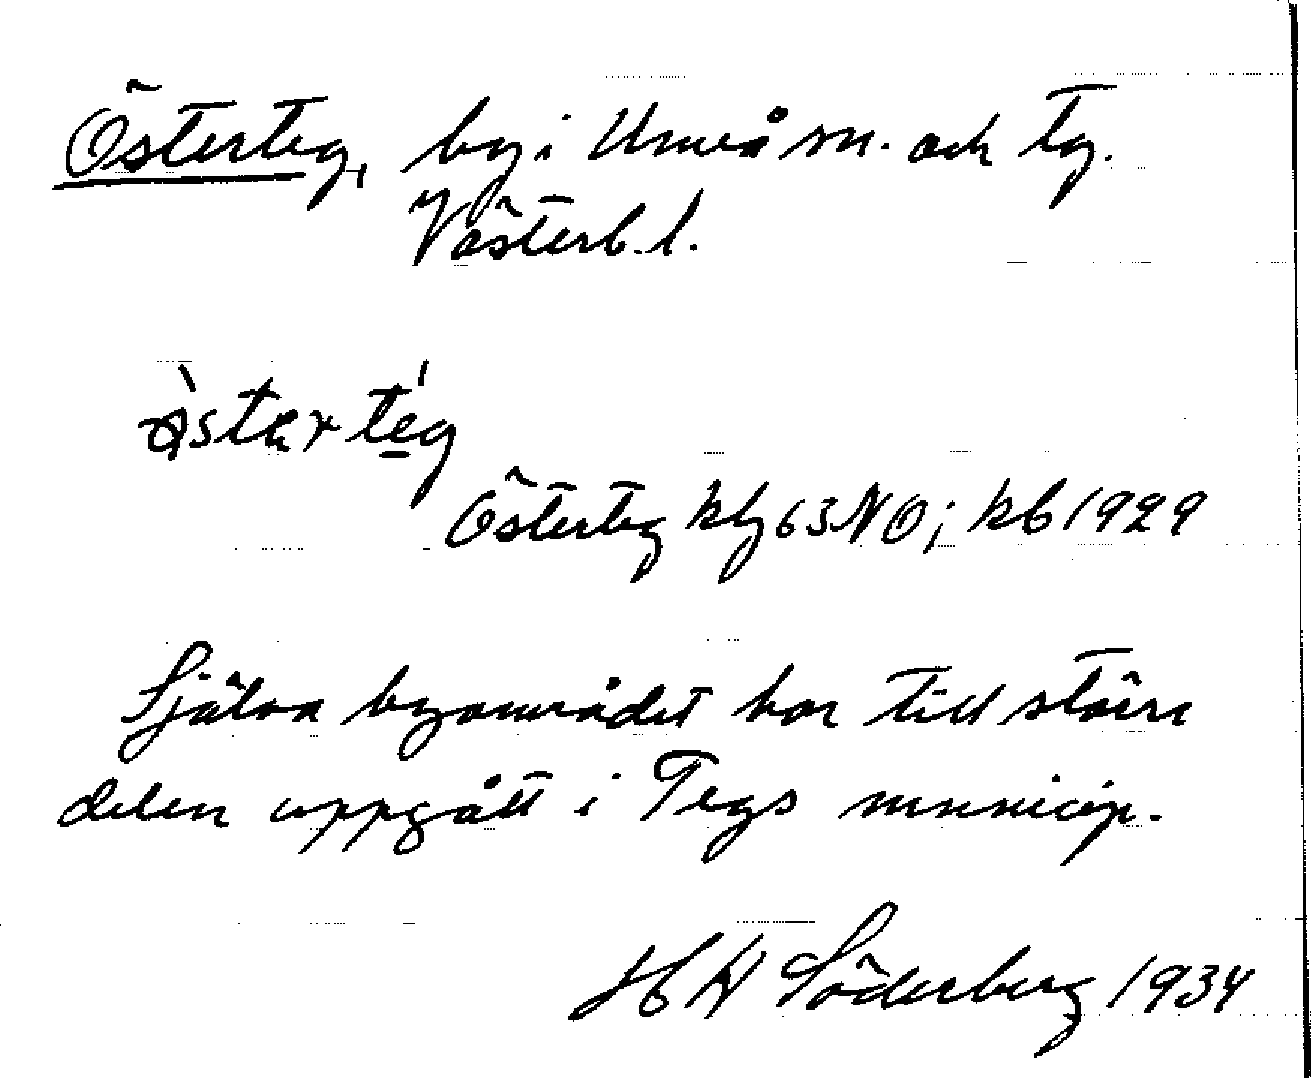 Österteg, by i Umeå sn. och tg.
Västerb. l.
Österteg kbl 63 NO; kb 1929
Själva byområdet har till större
delen uppgått i Tegs municip.
H W Söderberg 1934